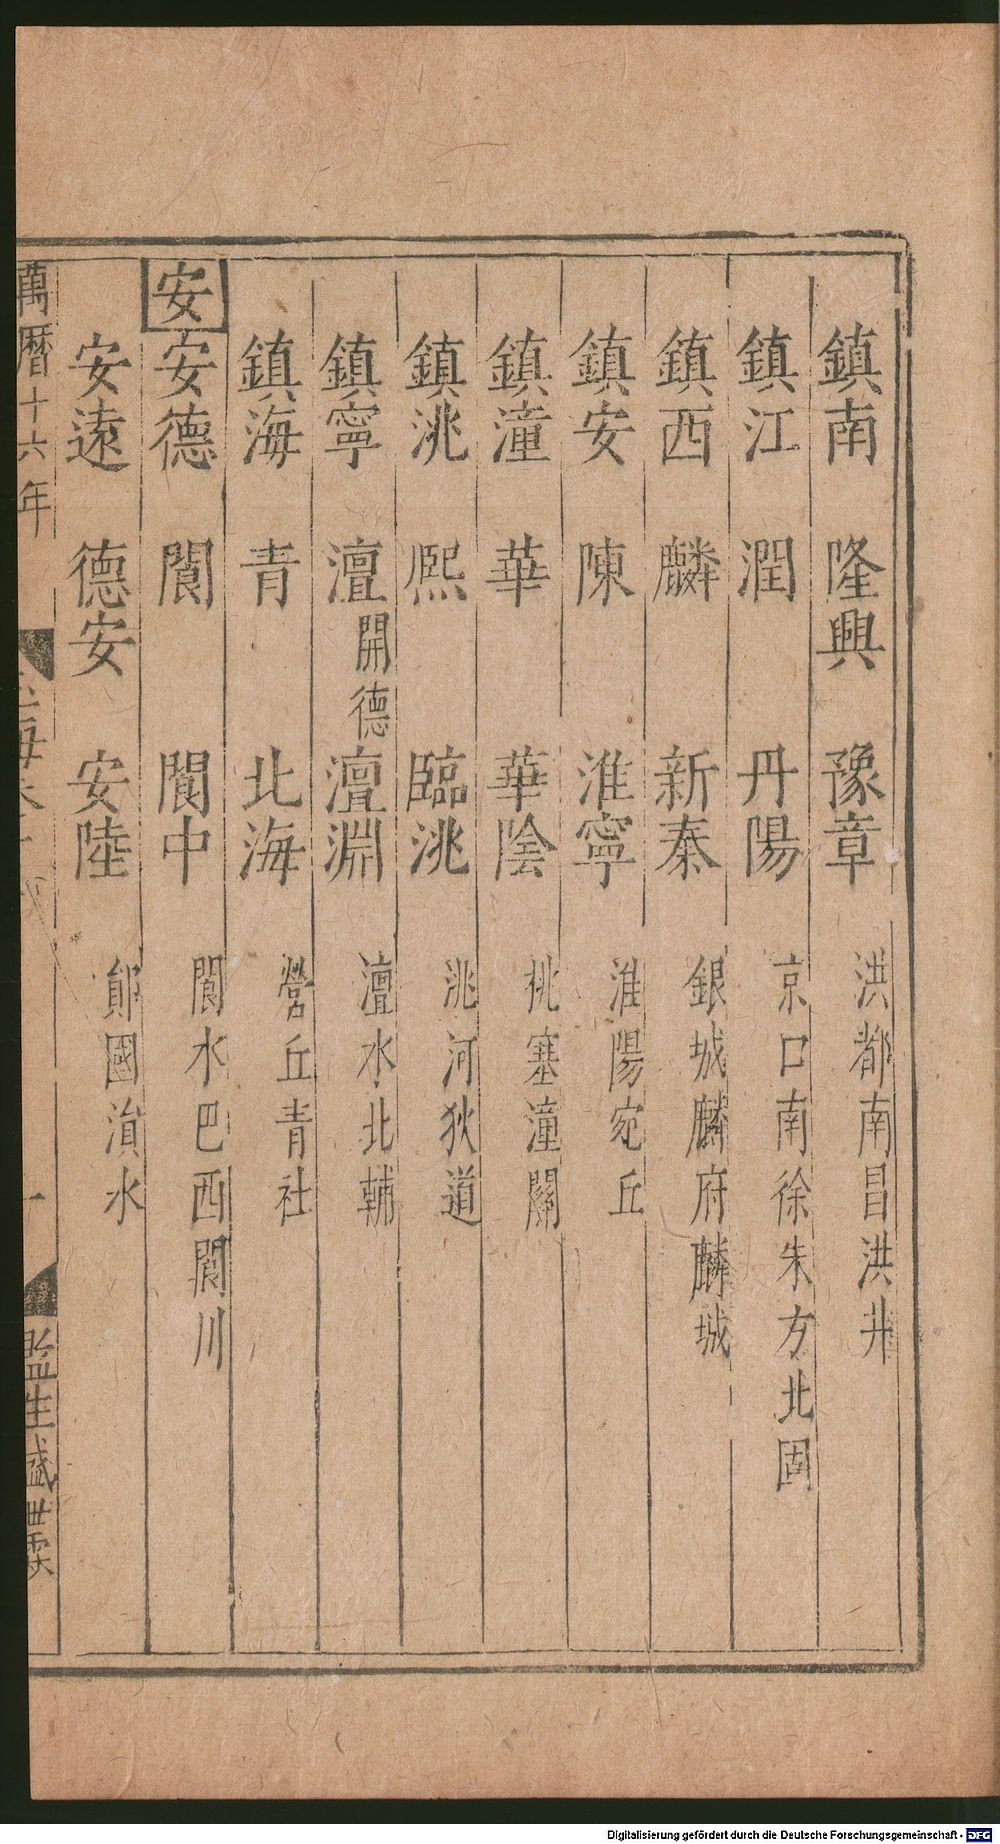 鎮南 隆興 豫章 洪都南昌洪井
鎮江 潤 丹陽 京口南徐朱方北固
鎮西 麟 新秦 銀城麟府麟城
鎮安 陳 淮寧 淮陽宛丘
鎮潼 華 華陰 桃塞潼關
鎮洮 熙 臨洮 洮河狄道
鎮寧 澶開德 澶淵 澶水北輔
鎮海 青 北海 營丘青社
安 安德 閬 閬中 閬水巴西閬川
安遠 德安 安陸 鄖國溳水
萬曆十六年 監生盛世霖
Digitalisierung gefördert durch die Deutsche Forschungsgemeinschaft - DFG